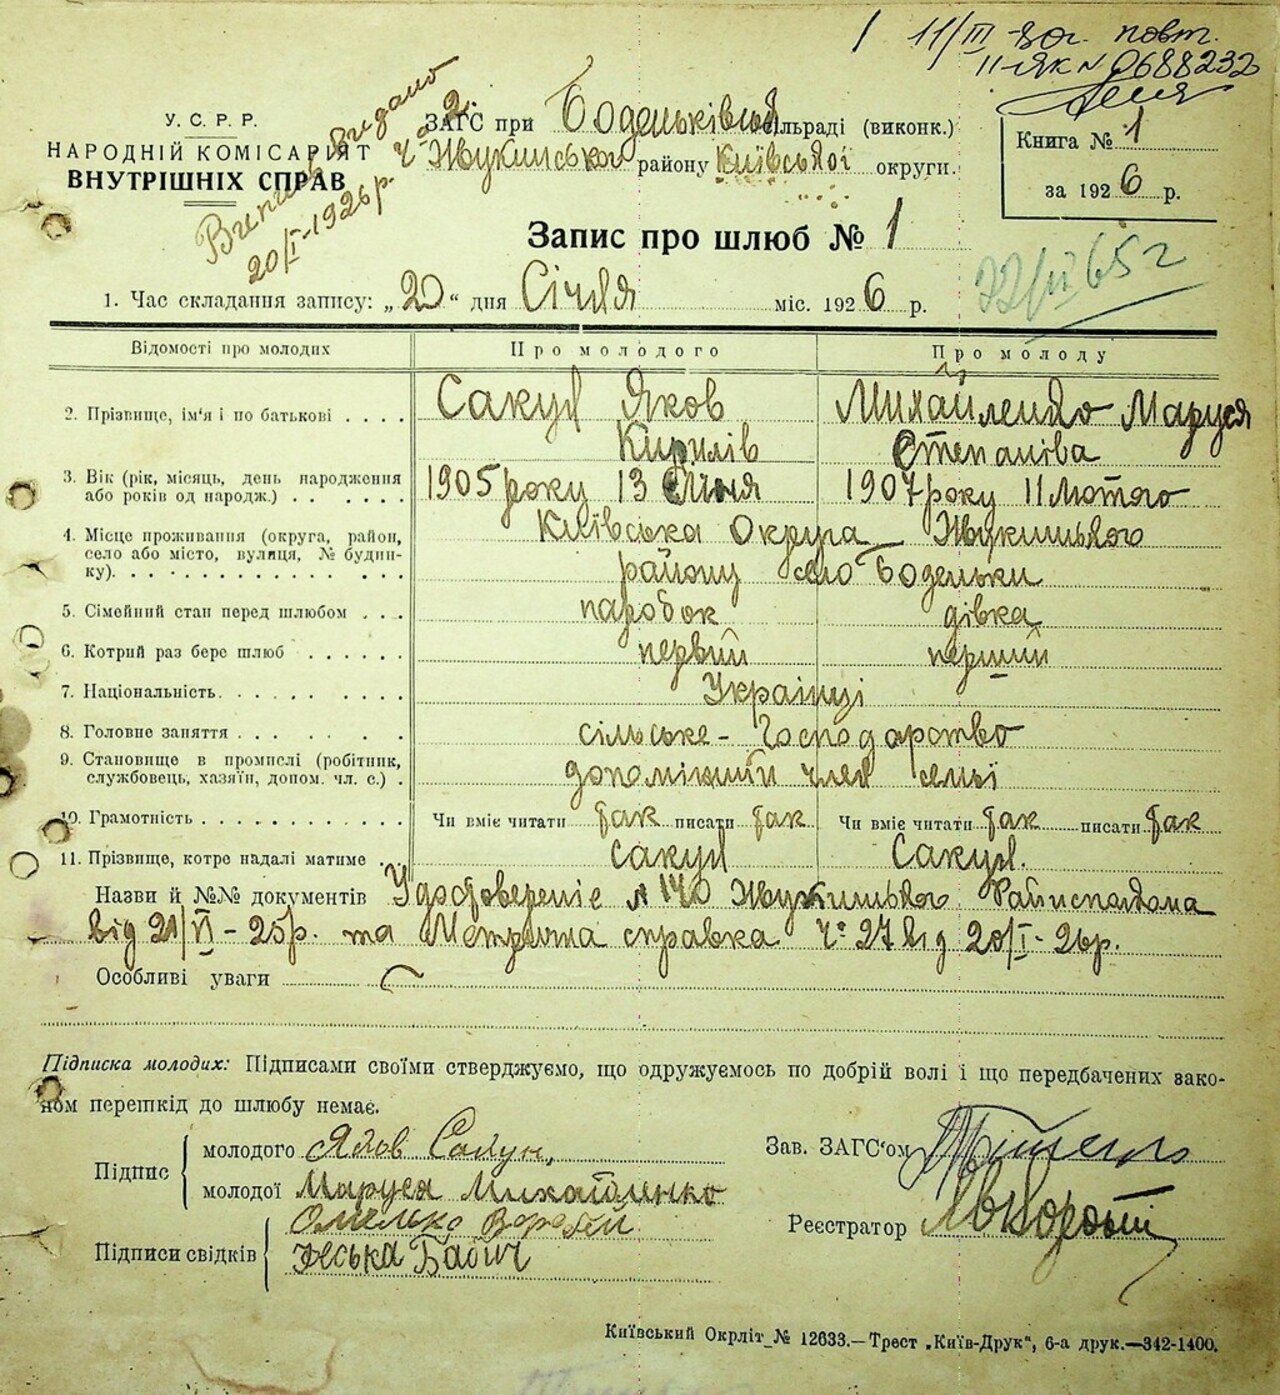 11/III-80г. повт.
II-ЯК N 0688232
У. С. Р. Р.
НАРОДНІЙ КОМІСАРІЯТ
ВНУТРІШНІХ СПРАВ
Випись видано
20/I-1926 р. Ч-а 2.
ЗАГС при Боденьківській сільраді (виконк.)
Жукинського району Київської округи.
Книга № 1
за 1926 р.
Запис про шлюб № 1
22/II 65 г
1. Час складання запису: „20“ дня Січня міс. 1926 р.
Відомості про молодих Про молодого Про молоду
2. Прізвище, ім'я і по батькові . . . . Сакун Яков Михайленко Маруся
Кирилів Степанівa
3. Вік (рік, місяць, день народження або років од народж.) . . . . . . 1905 року 13 Січня 1907 року 11 Лютого
4. Місце проживання (округа, район, село або місто, вулиця, № будинку). . . Київська Округа Жукинського
району село Боденьки
5. Сімейний стан перед шлюбом . . . паробок дівка
6. Котрий раз бере шлюб . . . . . . первий перший
7. Національність. . . . . . . . . Українці
8. Головне заняття . . . . . . . . сільське-Господарство
9. Становище в промислі (робітник, службовець, хазяїн, допом. чл. с.) . допоміжний член семьї
10. Грамотність . . . . . . . . . . . Чи вміє читати так писати так Чи вміє читати так писати так
11. Прізвище, котре надалі матиме . . Сакун Сакун.
Назви й №№ документів Удостоверенiє № 170 Жукинського Райисполкома
від 21/VI-25р. та Метрична справка Ч° 27 від 20/I-26р.
Особливі уваги
Підписка молодих: Підписами своїми стверджуємо, що одружуємось по добрій волі і що передбачених зако-
ном перешкід до шлюбу немає.
Підпис
молодого Яков Сакун,
молодої Маруся Михайленко
Підписи свідків
Омелько
Зіська Бабич
Зав. ЗАГС'ом
Реєстратор
Київський Окрліт № 12633.—Трест „Київ-Друк“, 6-а друк.—342-1400.